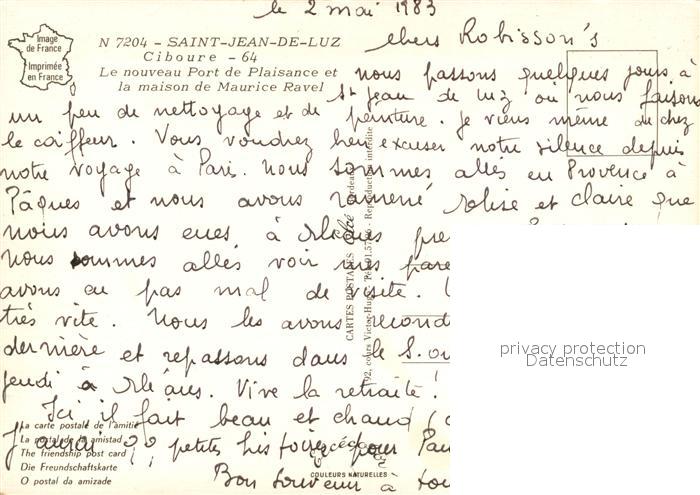 le 2 mai 1983
Image
de France
Imprimée
en France
N 7204 - SAINT-JEAN-DE-LUZ
Ciboure - 64
Le nouveau Port de Plaisance et
la maison de Maurice Ravel
chers Robisson's
nous passons quelques jours à
St Jean de Luz où nous faisons
un peu de nettoyage et de peinture. Je viens même de chez
le coiffeur. Vous voudrez bien excuser notre silence depuis
notre voyage à Paris. Nous sommes allés en Provence à
Pâques et nous avons ramené et Claire que
nous avons eues à Orléans
Nous sommes allés voir mes
avons eu pas mal de visite.
très vite. Nous les avons
dernière et repassons dans le S.
jeudi à Orléans. Vive la retraite!
Ici il fait beau et chaud
J'aurai petites histoires pour
Bon souvenir à
CARTES POSTALES
192, cours Victor-Hugo
Reproduction interdite
La carte postale de l'amitié
La postal de la amistad
The friendship post card
Die Freundschaftskarte
O postal da amizade
COULEURS NATURELLES
privacy protection
Datenschutz